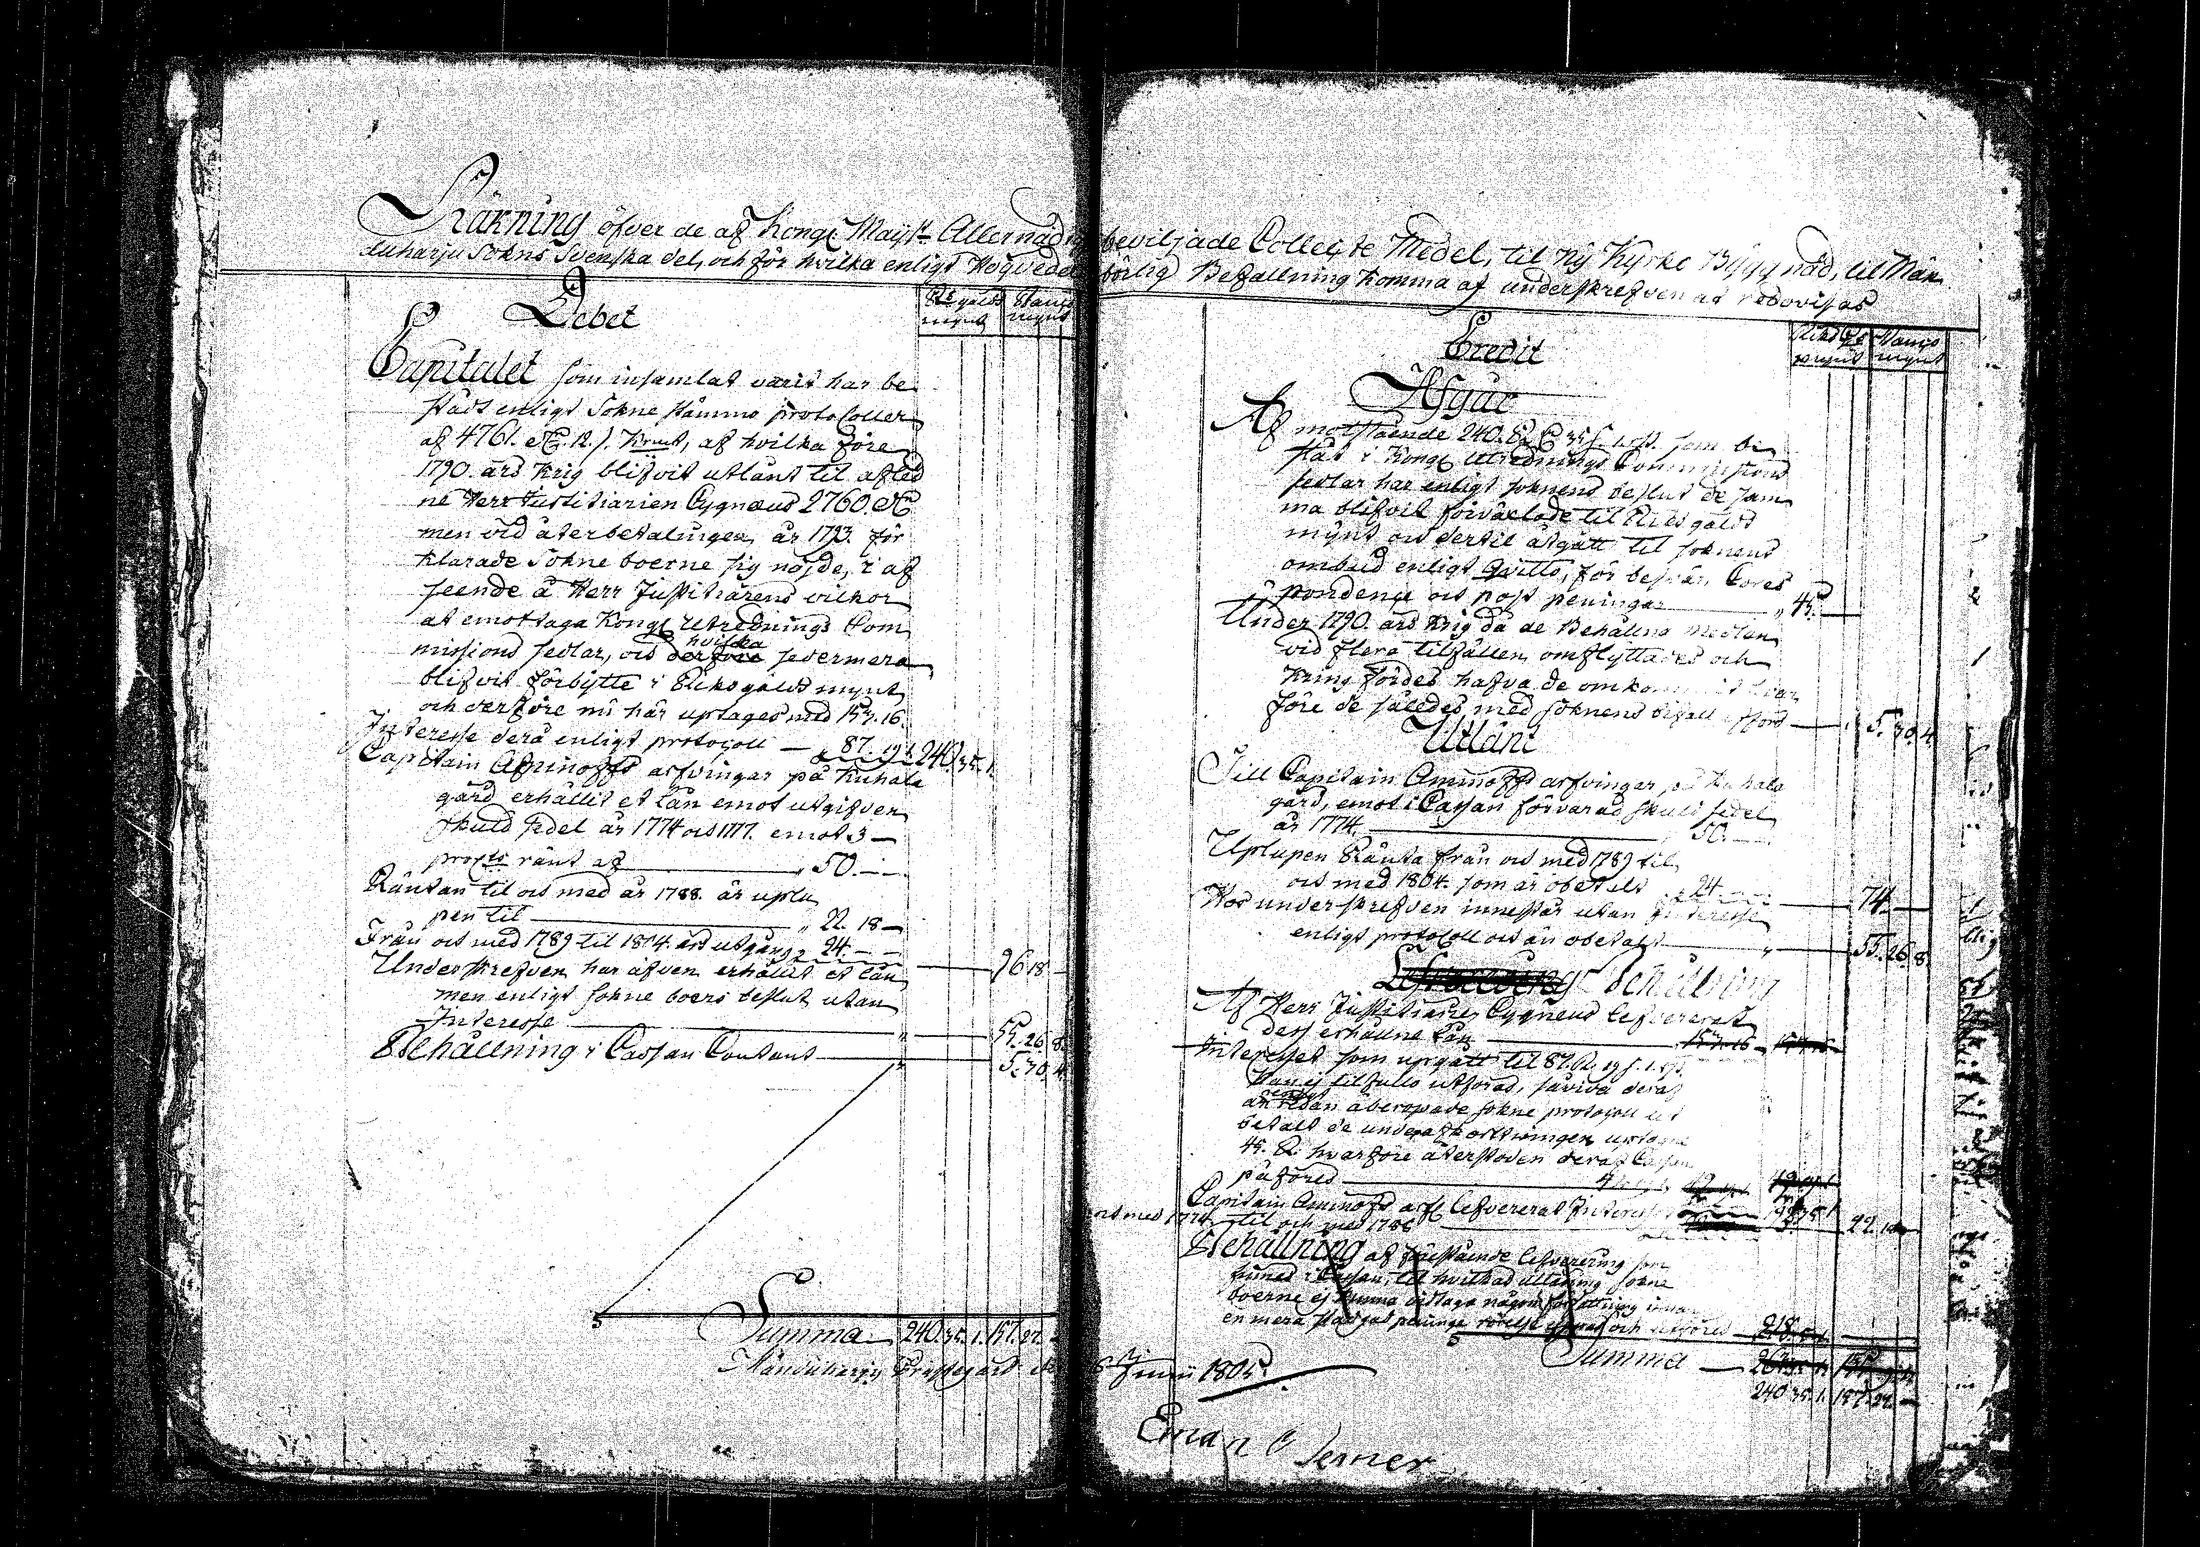 Räkning öfver de af Kongl Maij:tt Allernådigst beviljade Collecte Medel, til Ny Kyrko Byggnad, til Män
tuharju Sokns Svenska del, och för hvilka enligt Högvederbörlig Befallning komma af underskrefven at redovisas
Debet
Riksgälds mynt
Banco mynt
Capitalet som insamlat varit har be
stådt enligt Sokne stämmo protocoller
af 4761. 12. Kmt, af hvilka före
1790. års krig blifvit utlånt til afled
ne Herr Justitiarien Cygnæus 2760.
men vid återbetalningen, år 1793. för
klarade Sokne boerne sig nöjde, i af
seende å Herr Justitiärens vilkor
at emottaga Kongl Utrednings Com
missions sedlar, och hvilka sedermera
blifvit förbytte i Riksgälds mynt
och derföre nu här uptages med 153. 16.
Interesse derå enligt protocoll — 87. 19. 1. 240. 35. 1.
Capitain Aminoffs arfvingar på Kuhala
gård erhållit et lån emot utgifven
skuld sedel år 1774 och 1777. emot 3 —
procto ränt af — 50. — —
Räntan til och med år 1788. är uplu
pen til — 22. 18 —
Från och med 1789 til 1804. års utgång 24. — —
96 18 —
Underskrefven har äfven erhållit et lån
men enligt Sokne boers beslut utan
Interesse — 55. 26. 8.
Behållning i Cassan Contant — 5. 30. 4.
Summa — 240. 35. 1. 157. 27. —
Mänduharju Prästegård de
Credit
Riksgs mynt
Banco mynt
Afgår
Af motstående 240. 35. 1. som be
stått i Kongl Utrednings Commissions
sedlar har enligt soknens beslut de sam
ma blifvit förväxlade til Riksgälds
mynt och dertil åtgått til soknens
ombud enligt Qvitto, för besvär, Cores
pondence och post peningar — 45. —
Under 1790. års krig då de Behållna medlen
vid flera tilfällen omflyttades och
kring fördes hafva de omkommit hvar
före de således med soknens bifall afförs — 5. 30. 4.
Utlånt
Till Capitain Aminoffs arfvingar på Kuhala
gård, emot i Cassan förvarad skuld sedel
år 1774. — 50. —
Uplupen Ränta från och med 1789 til
och med 1804. som är obetalt — 24. —
74. —
Hos underskrefven innestår utan Interesse
enligt protocoll och än obetalt — 55. 26. 8.
Behållning
Af Herr Justitiarien Cygneus lefvererat
dess erhållne lån — 153. 16
Interesset som upgått til 87. 19. 1.
kan ej tilfullo utföras, såvida deraf
enligt åberopade sokne protocoll
betalt de under afkortningen uptagne
45. hvarföre återstoden deraf Cassan
påföres
Capitain Aminoffs arfv lefvererat Interesse
och med 1774 til och med 1788 — 22. 18
Behållning af förestående lefverering som
finnes i Cassan, til hvilkas utlåning sokne
boerne ej kunna vidtaga någon författning innan
en mera stadgad peninge rörelse och utföres — 218.
Summa —
240 35. 1. 157. 27. —
6 Junii 1805.
Eman C Serner